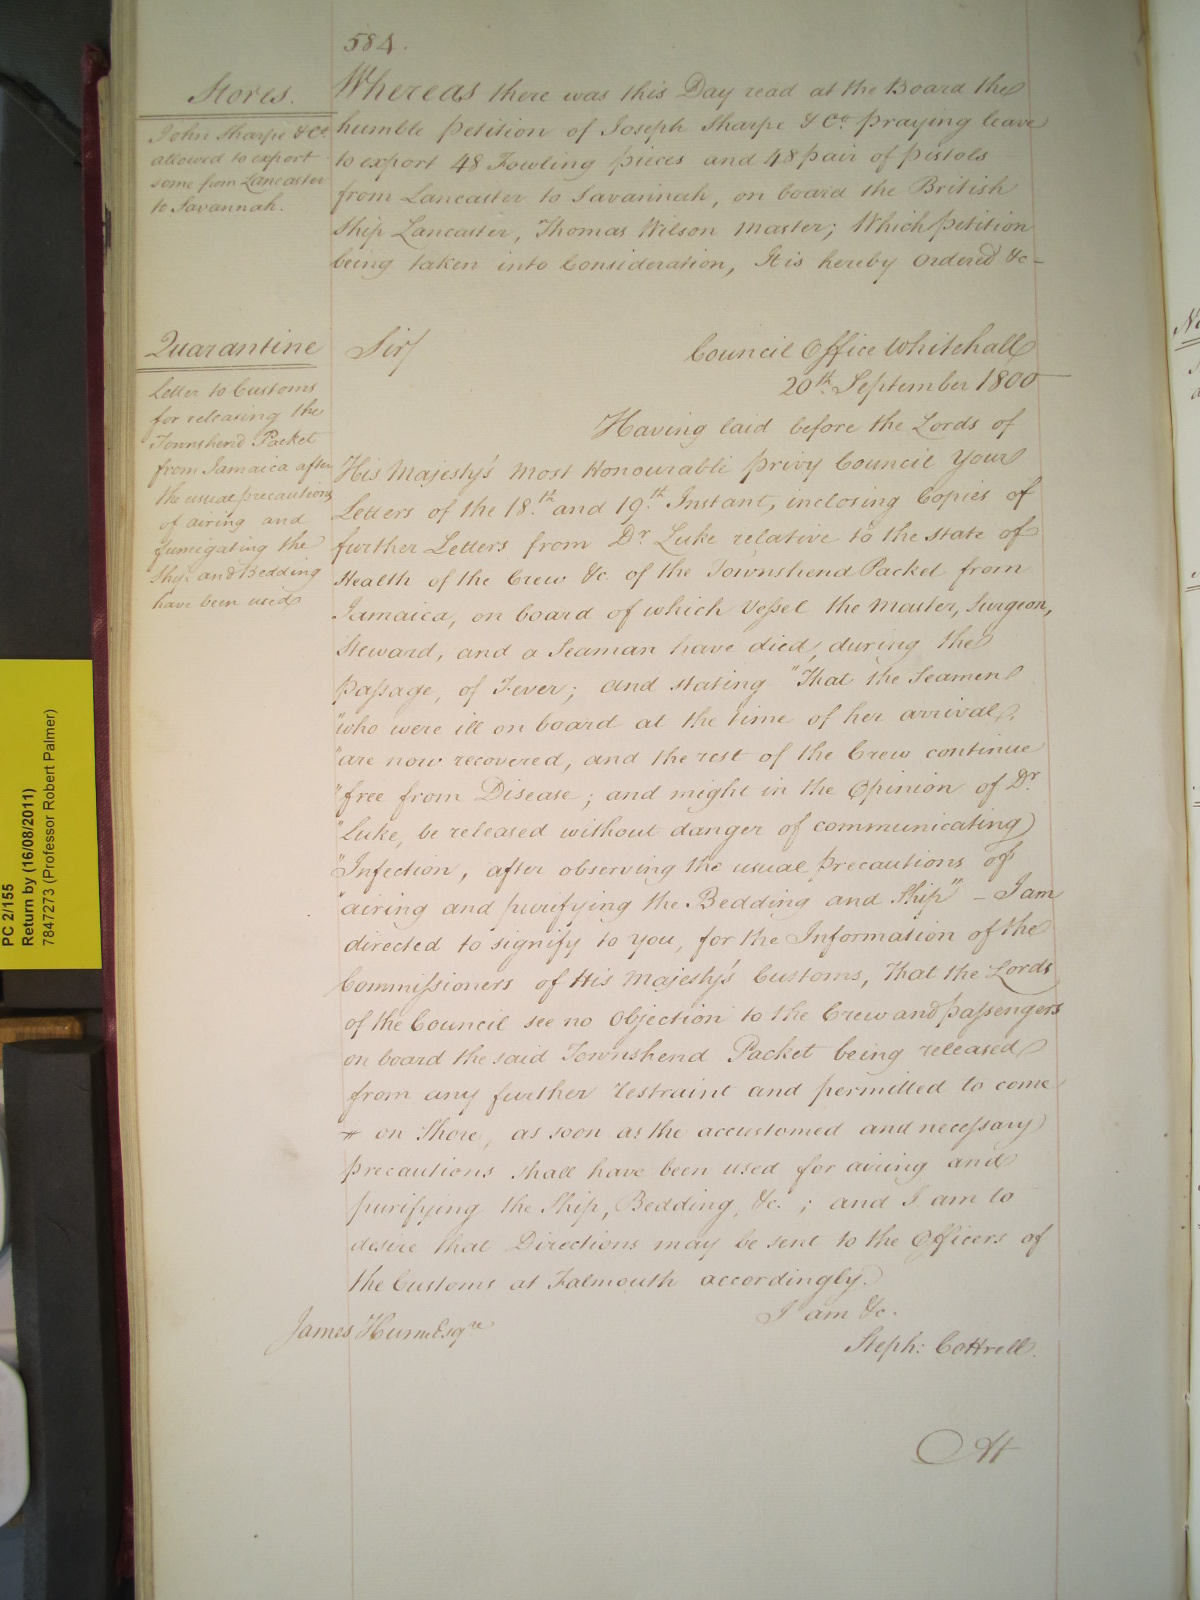 584.
Stores.
John Sharpe & Co.
allowed to export
some from Lancaster
to Savannah.
Whereas there was this Day read at the Board the
humble Petition of Joseph Sharpe & Co. praying leave
to export 48 Fowling pieces and 48 pair of Pistols
from Lancaster to Savannah, on board the British
Ship Lancaster, Thomas Wilson Master; Which Petition
being taken into Consideration, It is hereby Ordered &c-
Quarantine
Letter to Customs
for releasing the
Townshend Packet
from Jamaica after
the usual precautions
of airing and
fumigating the
Ship and Bedding
have been used
Sir/
Council Office Whitehall
20th. September 1800
Having laid before the Lords of
His Majesty's Most Honourable Privy Council Your
Letters of the 18.th and 19.th Instant, inclosing Copies of
further Letters from Dr. Luke relative to the state of
Health of the Crew &c. of the Townshend Packet from
Jamaica, on board of which Vessel the Master, Surgeon,
Steward, and a Seaman have died, during the
Passage, of Fever; and stating "That the Seamen
"who were ill on board at the time of her arrival,
"are now recovered, and the rest of the Crew continue
"free from Disease; and might in the Opinion of Dr.
"Luke, be released without danger of communicating
"Infection, after observing the usual Precautions of
"airing and purifying the Bedding and Ship" - I am
directed to signify to you, for the Information of the
Commissioners of His Majesty's Customs, That the Lords
of the Council see no Objection to the Crew and Passengers
on board the said Townshend Packet being released
from any further restraint and permitted to come
# on Shore, as soon as the accustomed and necessary
precautions shall have been used for airing and
purifying the Ship, Bedding, &c.; and I am to
desire that Directions may be sent to the Officers of
the Customs at Falmouth accordingly.
I am &c.
James Hume Esqre
Steph: Cottrell.
At
PC 2/155
Return by (16/08/2011)
7847273 (Professor Robert Palmer)